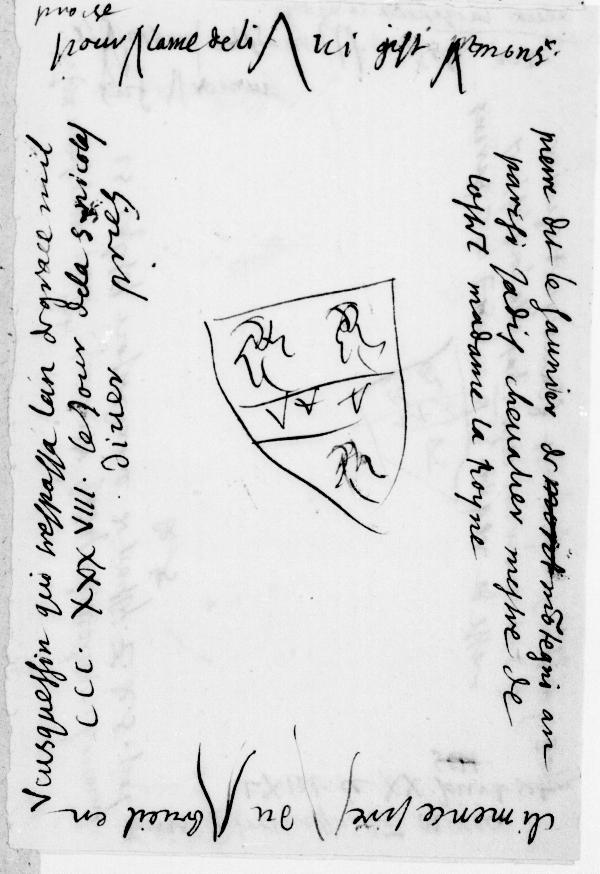 pour lame de li Ici gist mons.
pierre dit le Jaunier de mōtegni an
parisi Jadis chevalier mestre de
lostel madame la Royne
climence sire du brueil en
veusquessin qui trespassa lan de grace mil
CCC. XXXVIII. le Jour de la S. nicolas
diver priez